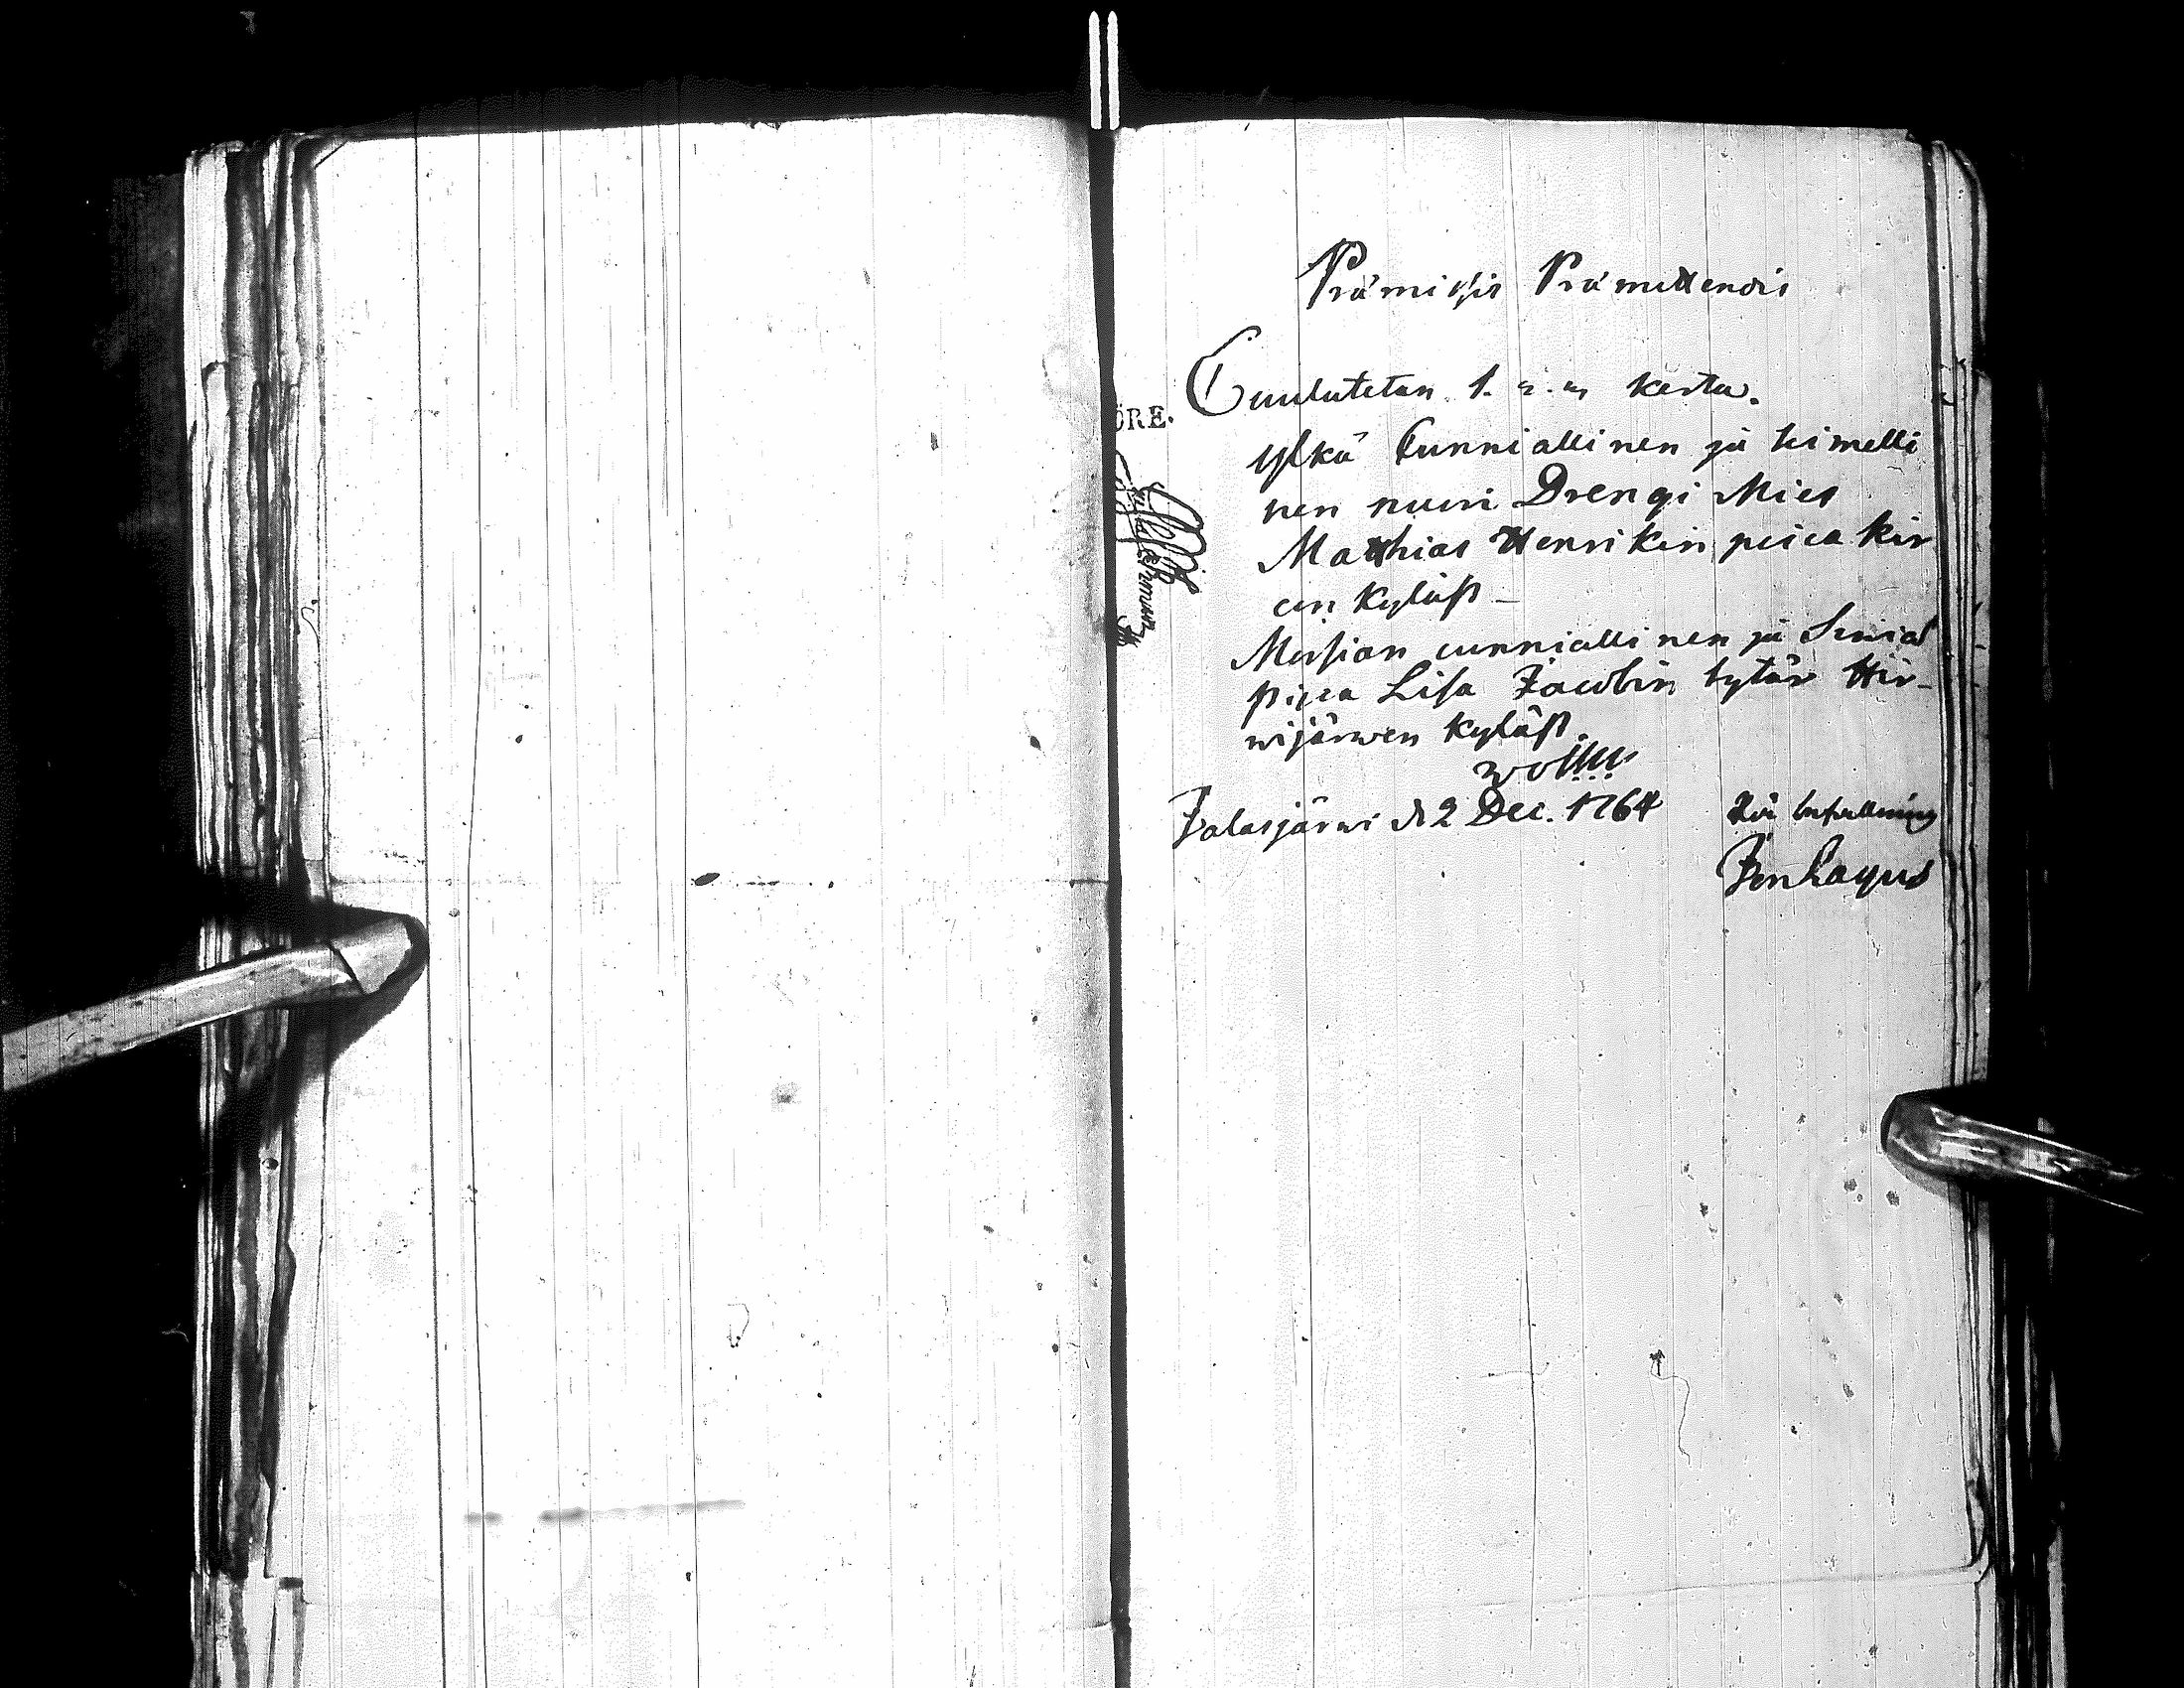 Præmissis Præmittendis
Cuulutetan 1. 2. 3. kerta.
ÖRE.
Ylkä Cunniallinen ja toimelli
nen nuori Drengi Mies
Matthias Henrikin poica kir
con kyläst
Morsian cunniallinen ja Siwiä
pijca Lisa Jacobin tytär Hir-
wijärwen kyläst.
Jalasjärwi d 2 Dec. 1764
På befallning